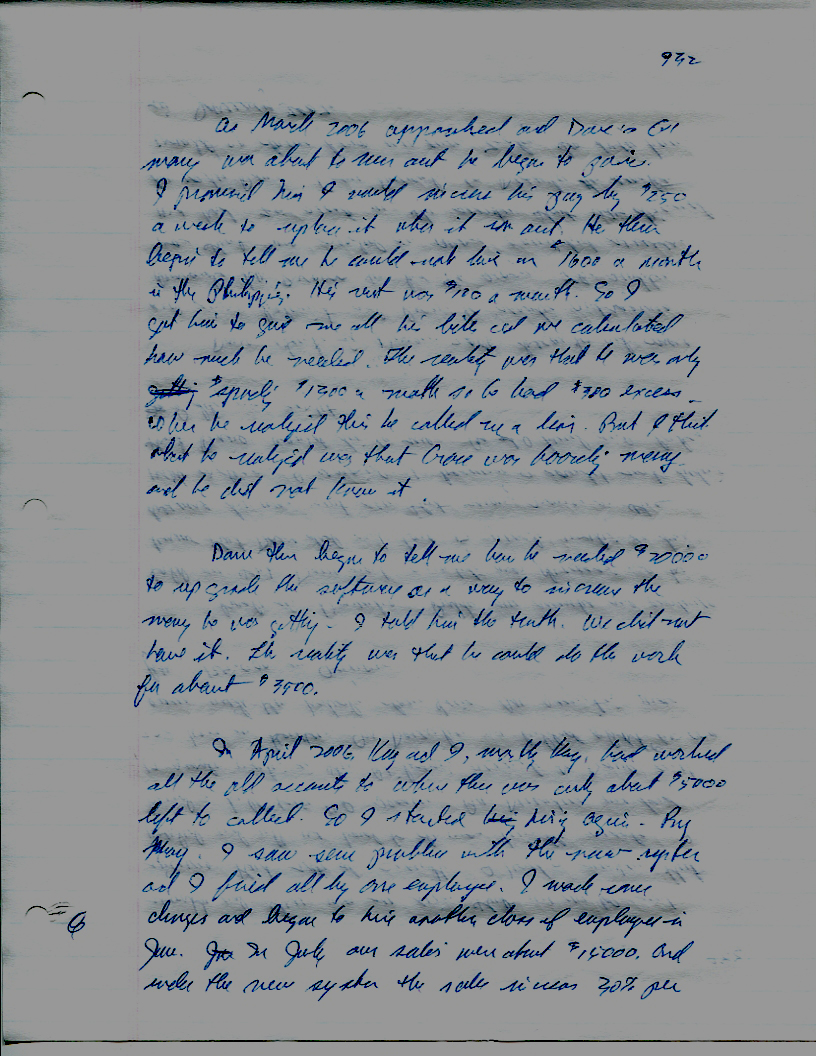 932
As March 2006 approached and Dave's
money was about to run out he began to
I promised him I would increase his pay by $250
a week to replace it when it ran out. He then
began to tell me he could not live on $1600 a month
in the Philippines. His rent was $180 a month. So I
got him to give me all his bills and we calculated
how much he needed. The reality was that he was only
spending $1200 a month so he had $380 excess.
When he realized this he called me a liar. But I think
what he realized was that was hoarding money
and he did not know it.
Dave then began to tell me how he needed $20000
to upgrade the software as a way to increase the
money he was getting. I told him the truth. We did not
have it. The reality was that he could do the work
for about $3500.
In April 2006, Kay and I, mostly Kay, had worked
all the old accounts to where there was only about $5000
left to collect. So I started hiring again. By
May. I saw some problem with the new system
and I fired all by one employee. I made some
changes and began to hire another class of employee in
June. In July our sales were about $15000. And
under the new system the sales increase 30% per
6